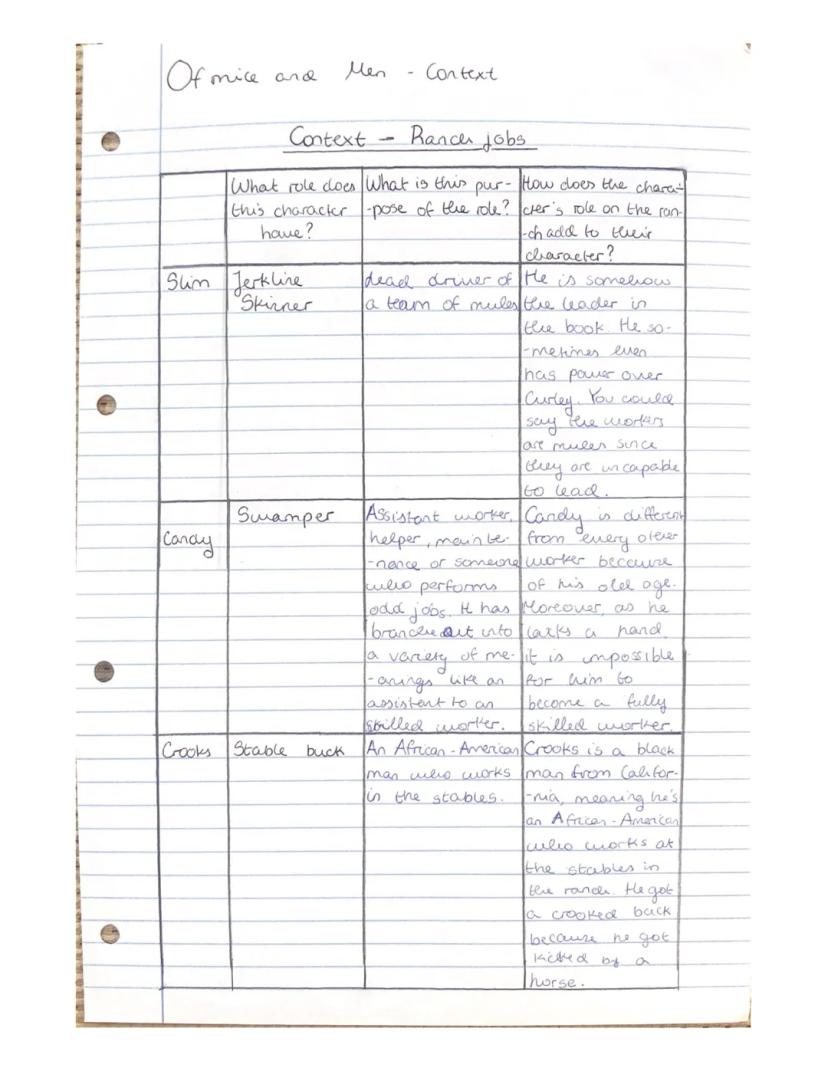 Of mice and Men - Context
Context - Ranch jobs
What role does
this character
have?
What is this pur-
-pose of the role?
How does the charac-
cter's role on the ran-
-ch add to their
character?
Slim
Jerkline
Skinner
dead driver of
a team of mules
He is somehow
the leader in
the book. He so-
-metimes even
has power over
Curley. You could
say the workers
are mules since
they are uncapable
to lead.
Candy
Swamper
Assistant worker,
helper, mainte-
-nance or someone
who performs
odd jobs. It has
branch out into
a variety of me-
-anings like an
assistent to an
skilled worker.
Candy is different
from every other
worker because
of his old age.
Moreover, as he
lacks a hand,
it is impossible
for him to
become a fully
skilled worker.
Crooks
Stable buck
An African-American
man who works
in the stables.
Crooks is a black
man from Califor-
-nia, meaning he's
an African-American
who works at
the stables in
the ranch. He got
a crooked back
because he got
kicked by a
horse.